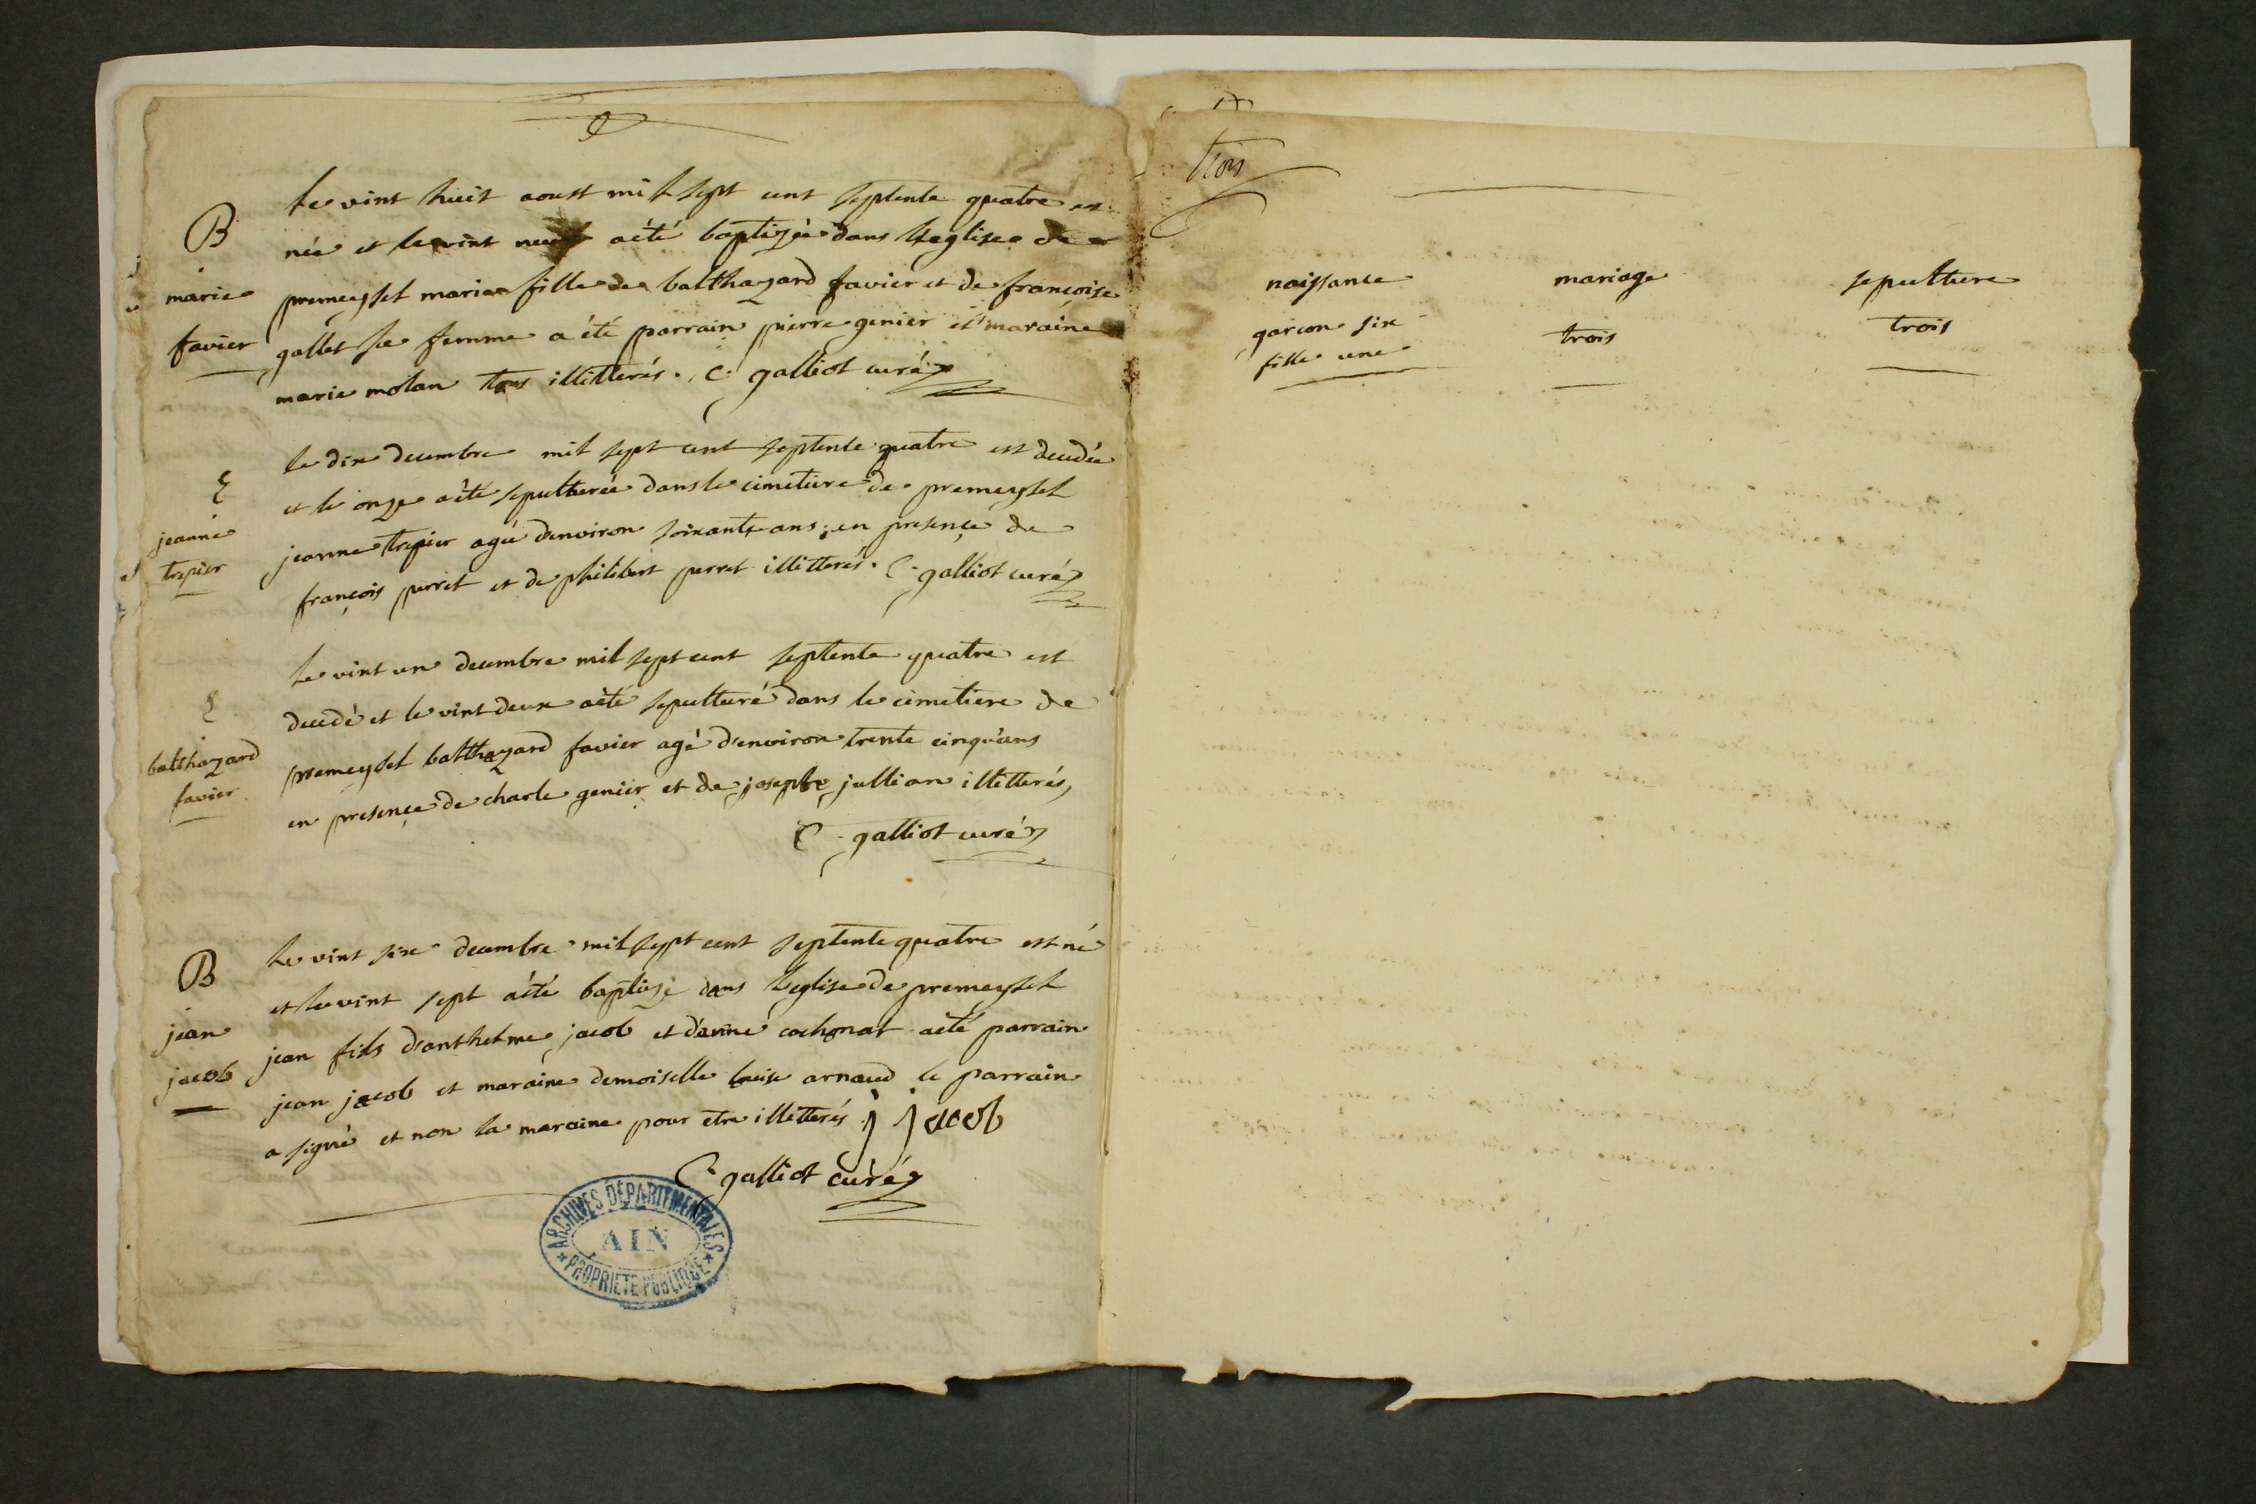 B
marie
favier
le vint huit aoust mil sept cent septente quatre est
née et le vint neuf a été baptizée dans l'eglise de
premeyzel marie fille de balthazard favier et de françoise
gallet sa femme a été parrain pierre genier et maraine
marie molan tous illitterés. C. galliot curé
S
jeanne
trepier
le dix decembre mil sept cent septente quatre est decedée
et le onze a été sepulturée dans le cimetiere de premeyzel
jeanne trepier agée d'environ soixante ans, en presençe de
françois perret et de philibert perret illitterés. C. galliot curé
S
balthazard
favier
le vint un decembre mil sept cent septente quatre est
decedé et le vint deux a été sepulturé dans le cimetiere de
premeyzel balthazard favier agé d'environ trente cinq ans
en presençe de charle genier et de joseph jullian illitterés,
C. galliot curé
B
jean
jacob
le vint six decembre mil sept cent septente quatre est né
et le vint sept a été baptizé dans l'eglise de premeyzel
jean fils d'anthelme jacob et d'anne cochonat a été parrain
jean jacob et maraine demoiselle louise arnaud le parrain
a signé et non la maraine pour etre illitterés j jacob
C. galliot curé
ARCHIVES DÉPARTEMENTALES
AIN
PROPRIÉTÉ PUBLIQUE
trois
naissance mariage sepulture
garçon six trois trois
fille une